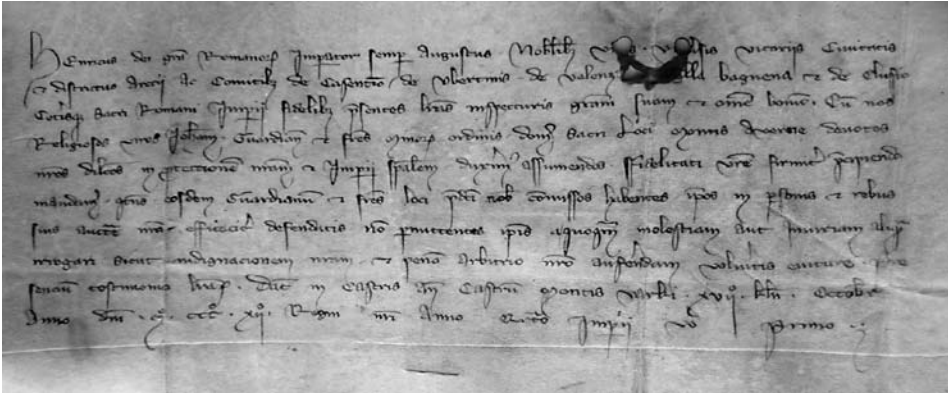 Henricus dei gra Romanor Imperator semp Augustus Nobilib vicarijs Civitatis
et districtus Aretij Ac Comitib de Casentino de Ubertinis de Valenz lla bagnena et de Clusio
Cetisq Sacri Romani Imperij fidelib psentes lras inspecturis gram suam et ome bonu Cu nos
Religiosos viros Johem Guardian et fres ordinis dom Sacri Loci Montis Averne devotos
nros dilcos in ptectionem nram et Imperij spalem assumendos ffidelitati vre firmit pcipiendo
mandam qtus eosdem Guardianu et fres loci pdci nob comissos habentes ipos in psonis et rebus
suis aucte nra efficacit defendatis no pmittentes ipis aquoqm molestiam aut Iniuriam
irrogari sicut indignacionem nram et pena Arbitrio nro auferendam volueritis evitare pre
sencium testimonio lrar Dat in Castris an Castru Montis Varki xvij kln Octobr
Anno dni m ccc xij Regni nri Anno Quarto Imperij vo Primo